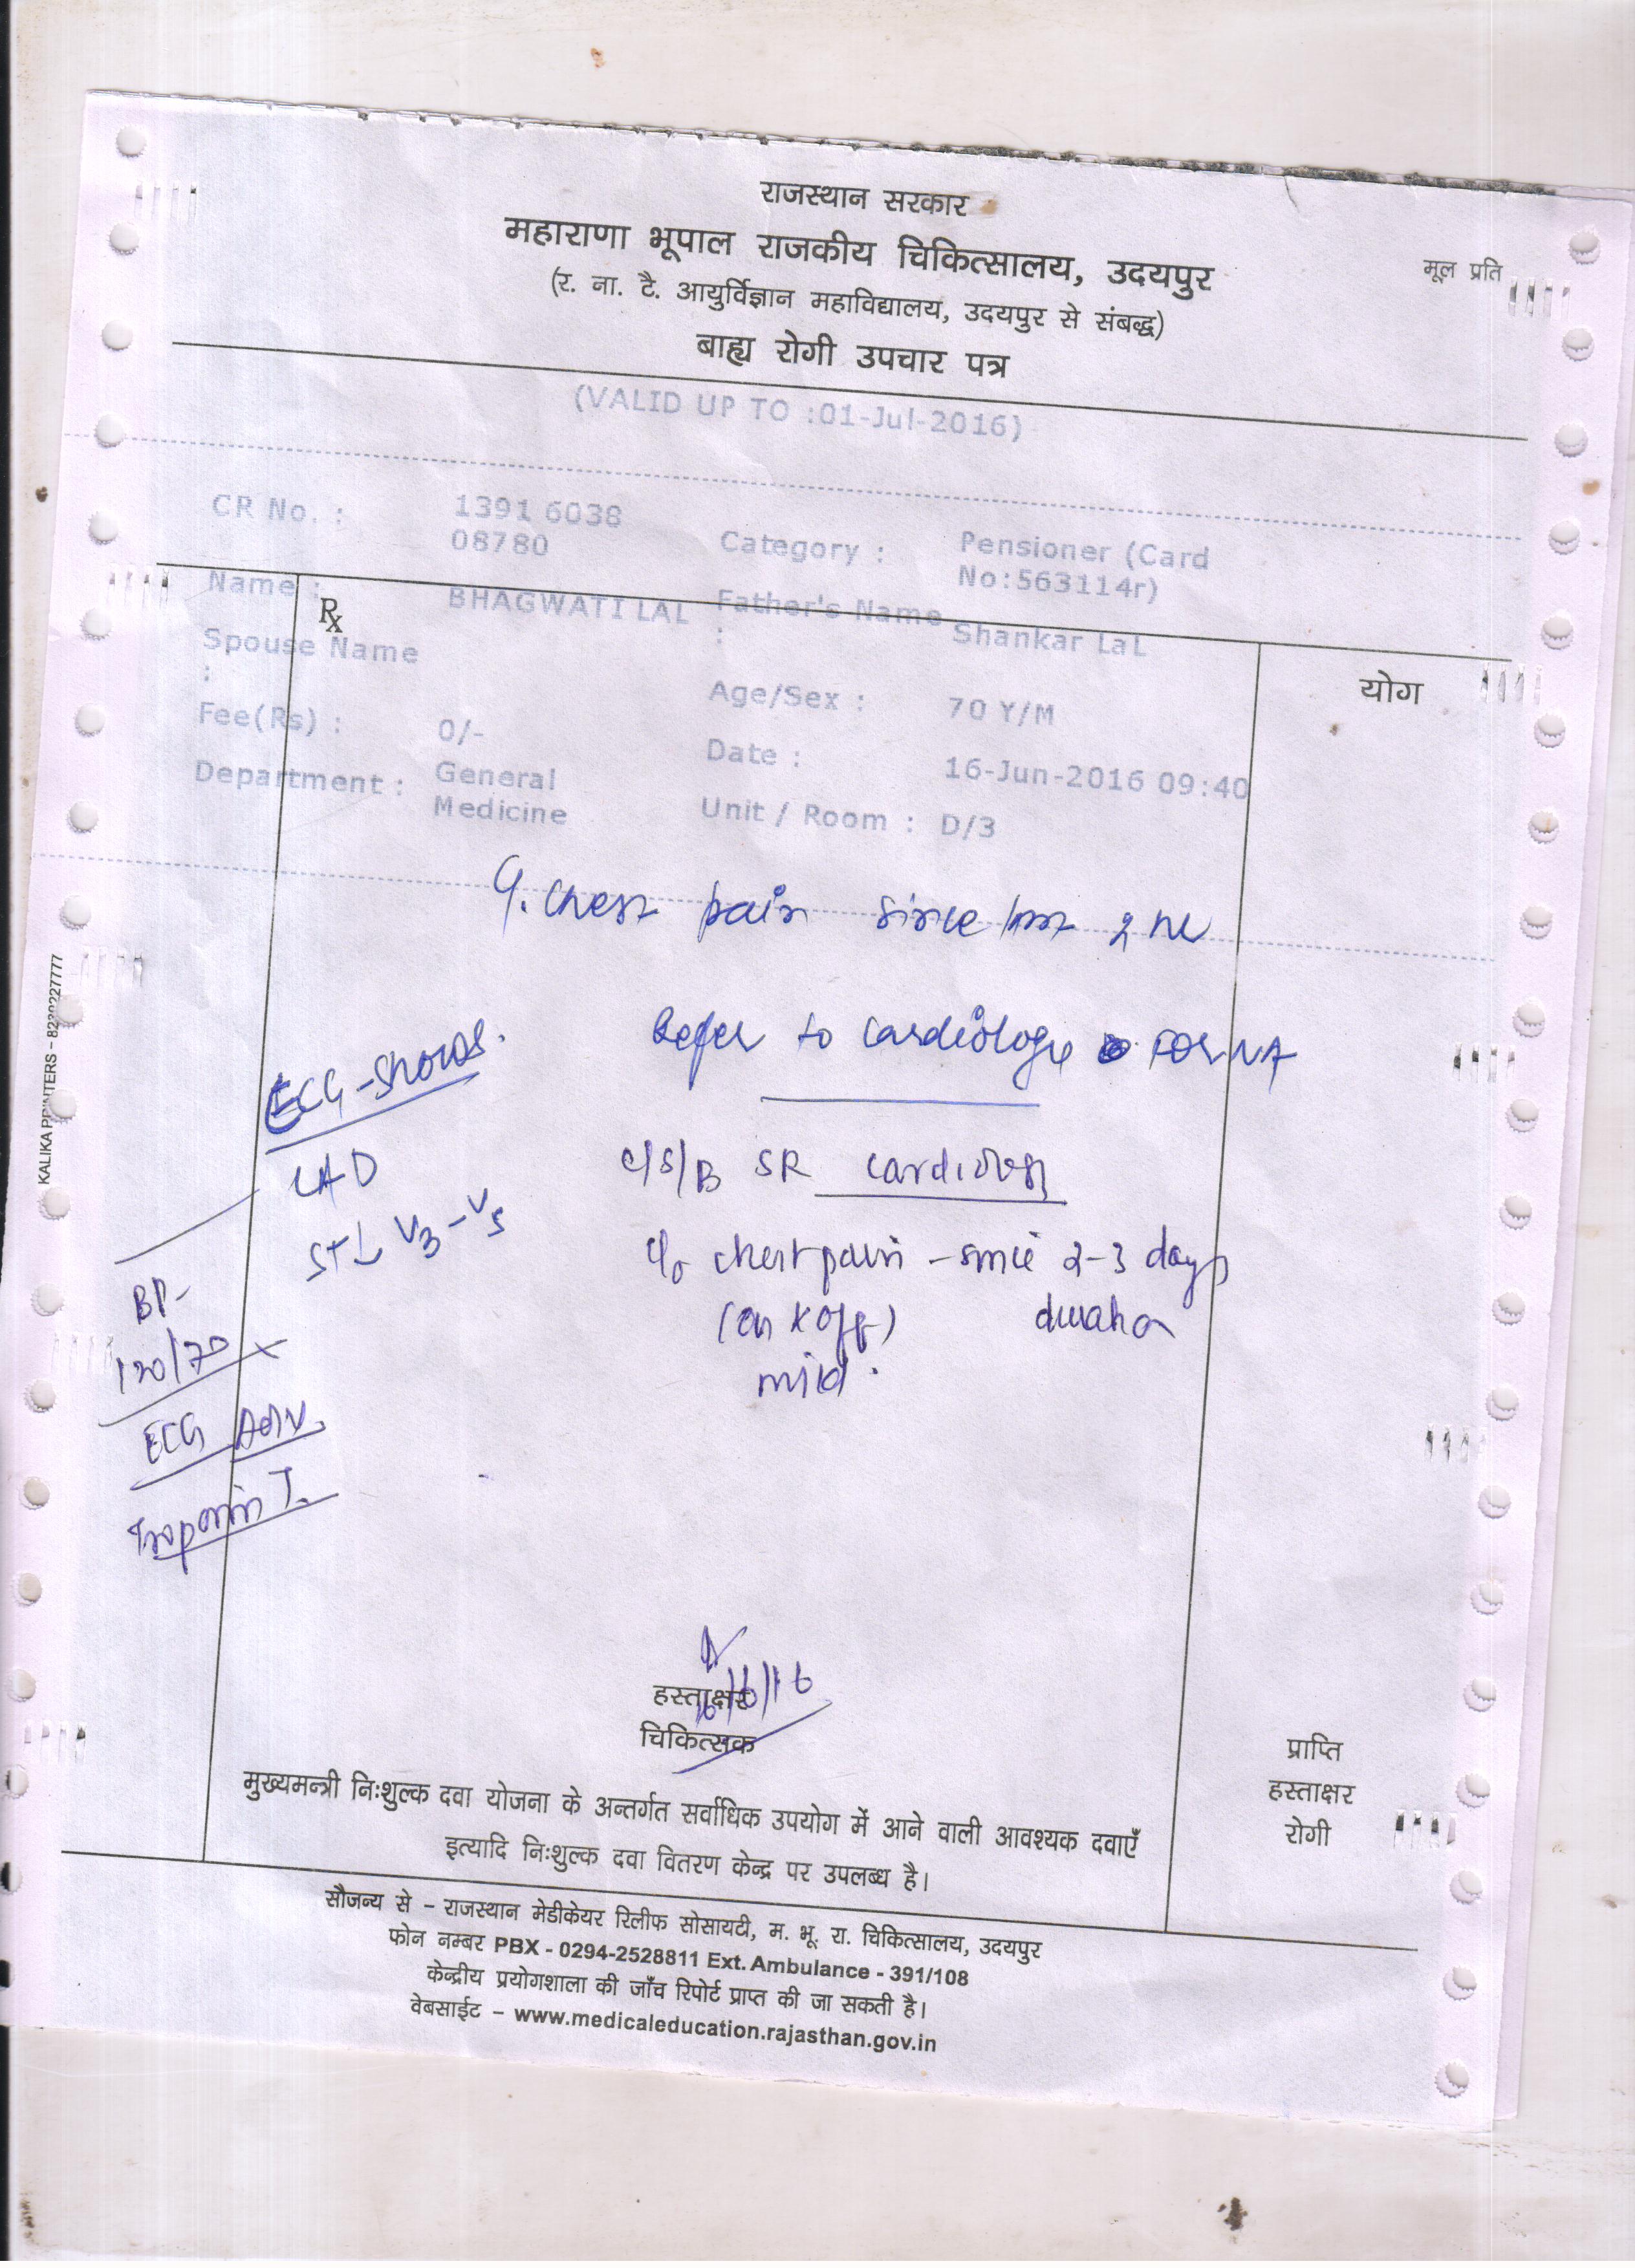 राजस्थान सरकार
महाराणा भूपाल राजकीय चिकित्सालय, उदयपुर
मूल प्रति
(र. ना. टै. आयुर्विज्ञान महाविद्यालय, उदयपुर से संबद्ध)
बाह्य रोगी उपचार पत्र
(VALID UP TO :01-Jul-2016)
CR No. : 1391 6038 08780
Category : Pensioner (Card No:563114r)
Name : BHAGWATI LAL
Father's Name : Shankar LaL
Spouse Name :
Age/Sex : 70 Y/M
Fee(Rs) : 0/-
Date : 16-Jun-2016 09:40
Department : General Medicine
Unit / Room : D/3
Rx
योग
chest pain since last 2
Refer to cardiologe
ECG-shows.
LAD
ST↓ V3-V5
c/s/B SR
c/o chest pain - since 2-3 days
(on & off)
mild.
BP-
120/70
ECG Adv.
Troponin T.
16/6/16
हस्ताक्षर
चिकित्सक
प्राप्ति
हस्ताक्षर
रोगी
मुख्यमन्त्री निःशुल्क दवा योजना के अन्तर्गत सर्वाधिक उपयोग में आने वाली आवश्यक दवाएँ
इत्यादि निःशुल्क दवा वितरण केन्द्र पर उपलब्ध है।
सौजन्य से – राजस्थान मेडीकेयर रिलीफ सोसायटी, म. भू. रा. चिकित्सालय, उदयपुर
फोन नम्बर PBX - 0294-2528811 Ext. Ambulance - 391/108
केन्द्रीय प्रयोगशाला की जाँच रिपोर्ट प्राप्त की जा सकती है।
वेबसाईट – www.medicaleducation.rajasthan.gov.in
KALIKA PRINTERS –